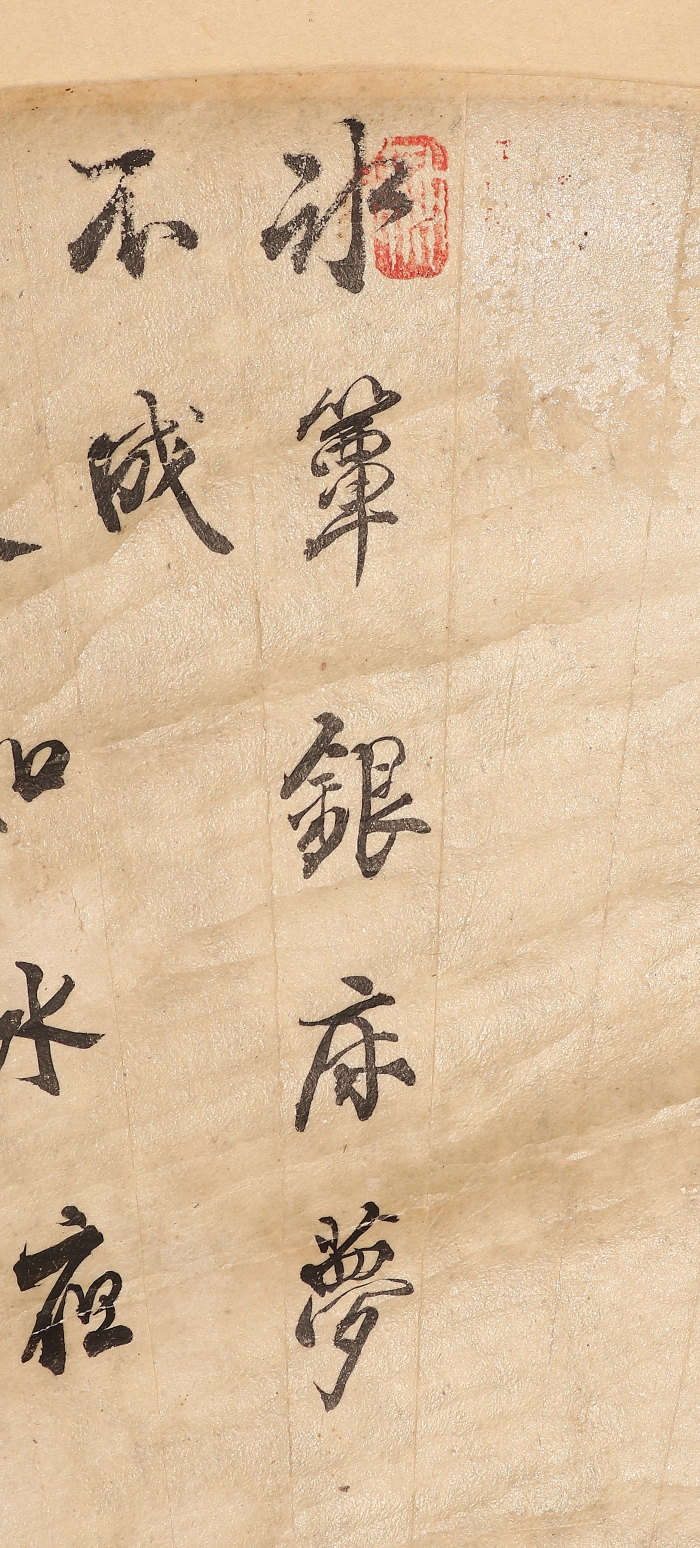 冰簟銀床夢
不成
如水夜